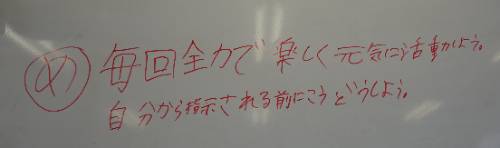 め 毎回全力で楽しく元気に活動しよう。
自分から指示される前にこうどうしよう。